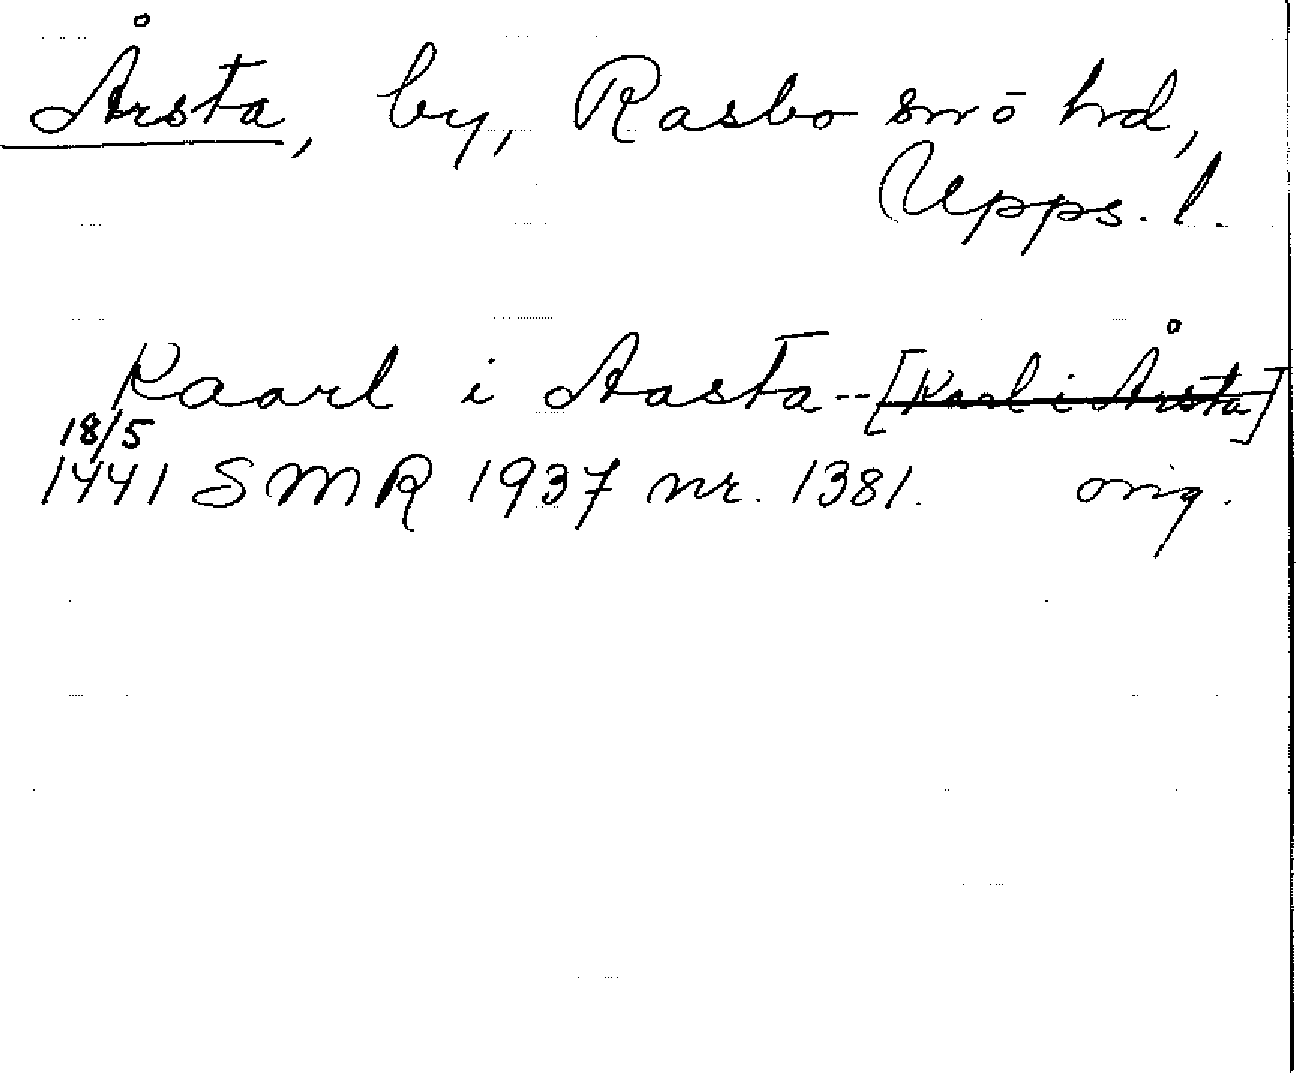 Årsta, by, Rasbo sn ō hd,
Upps. l.
Kaarl i Aasta--[Karl i Årsta]
18/5
1441 SMR 1937 nr. 1381. orig.